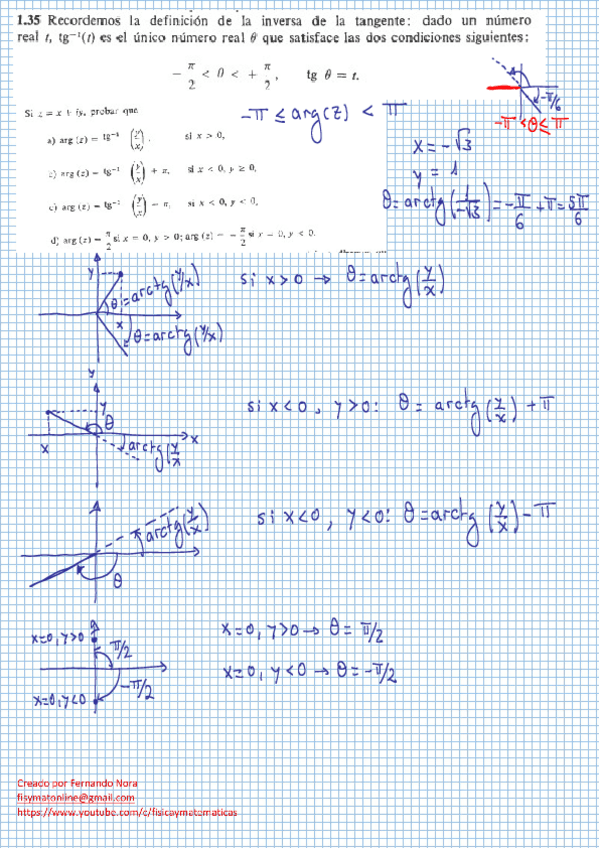 1.35 Recordemos la definición de la inversa de la tangente: dado un número
real t, tg⁻¹(t) es el único número real θ que satisface las dos condiciones siguientes:
- π/2 < θ < + π/2, tg θ = t.
Si z = x + iy, probar que
a) arg (z) = tg⁻¹ (y/x), si x > 0,
b) arg (z) = tg⁻¹ (y/x) + π, si x < 0, y ≥ 0,
c) arg (z) = tg⁻¹ (y/x) - π, si x < 0, y < 0,
d) arg (z) = π/2 si x = 0, y > 0; arg (z) = - π/2 si x = 0, y < 0.
-π ≤ arg(z) < π
-π/6
-π < θ ≤ π
x = -√3
y = 1
θ = arctg(1/-√3) = -π/6 + π = 5π/6
y
θ = arctg(y/x)
x
θ = arctg(y/x)
si x>0 → θ = arctg(y/x)
y
y
θ
x
x
arctg(y/x
si x<0, y>0: θ = arctg(y/x) + π
arctg(y/x)
θ
si x<0, y<0: θ = arctg(y/x) - π
x=0, y>0
π/2
-π/2
x=0, y<0
x=0, y>0 → θ = π/2
x=0, y<0 → θ = -π/2
Creado por Fernando Nora
fisymatonline@gmail.com
https://www.youtube.com/c/fisicaymatematicas